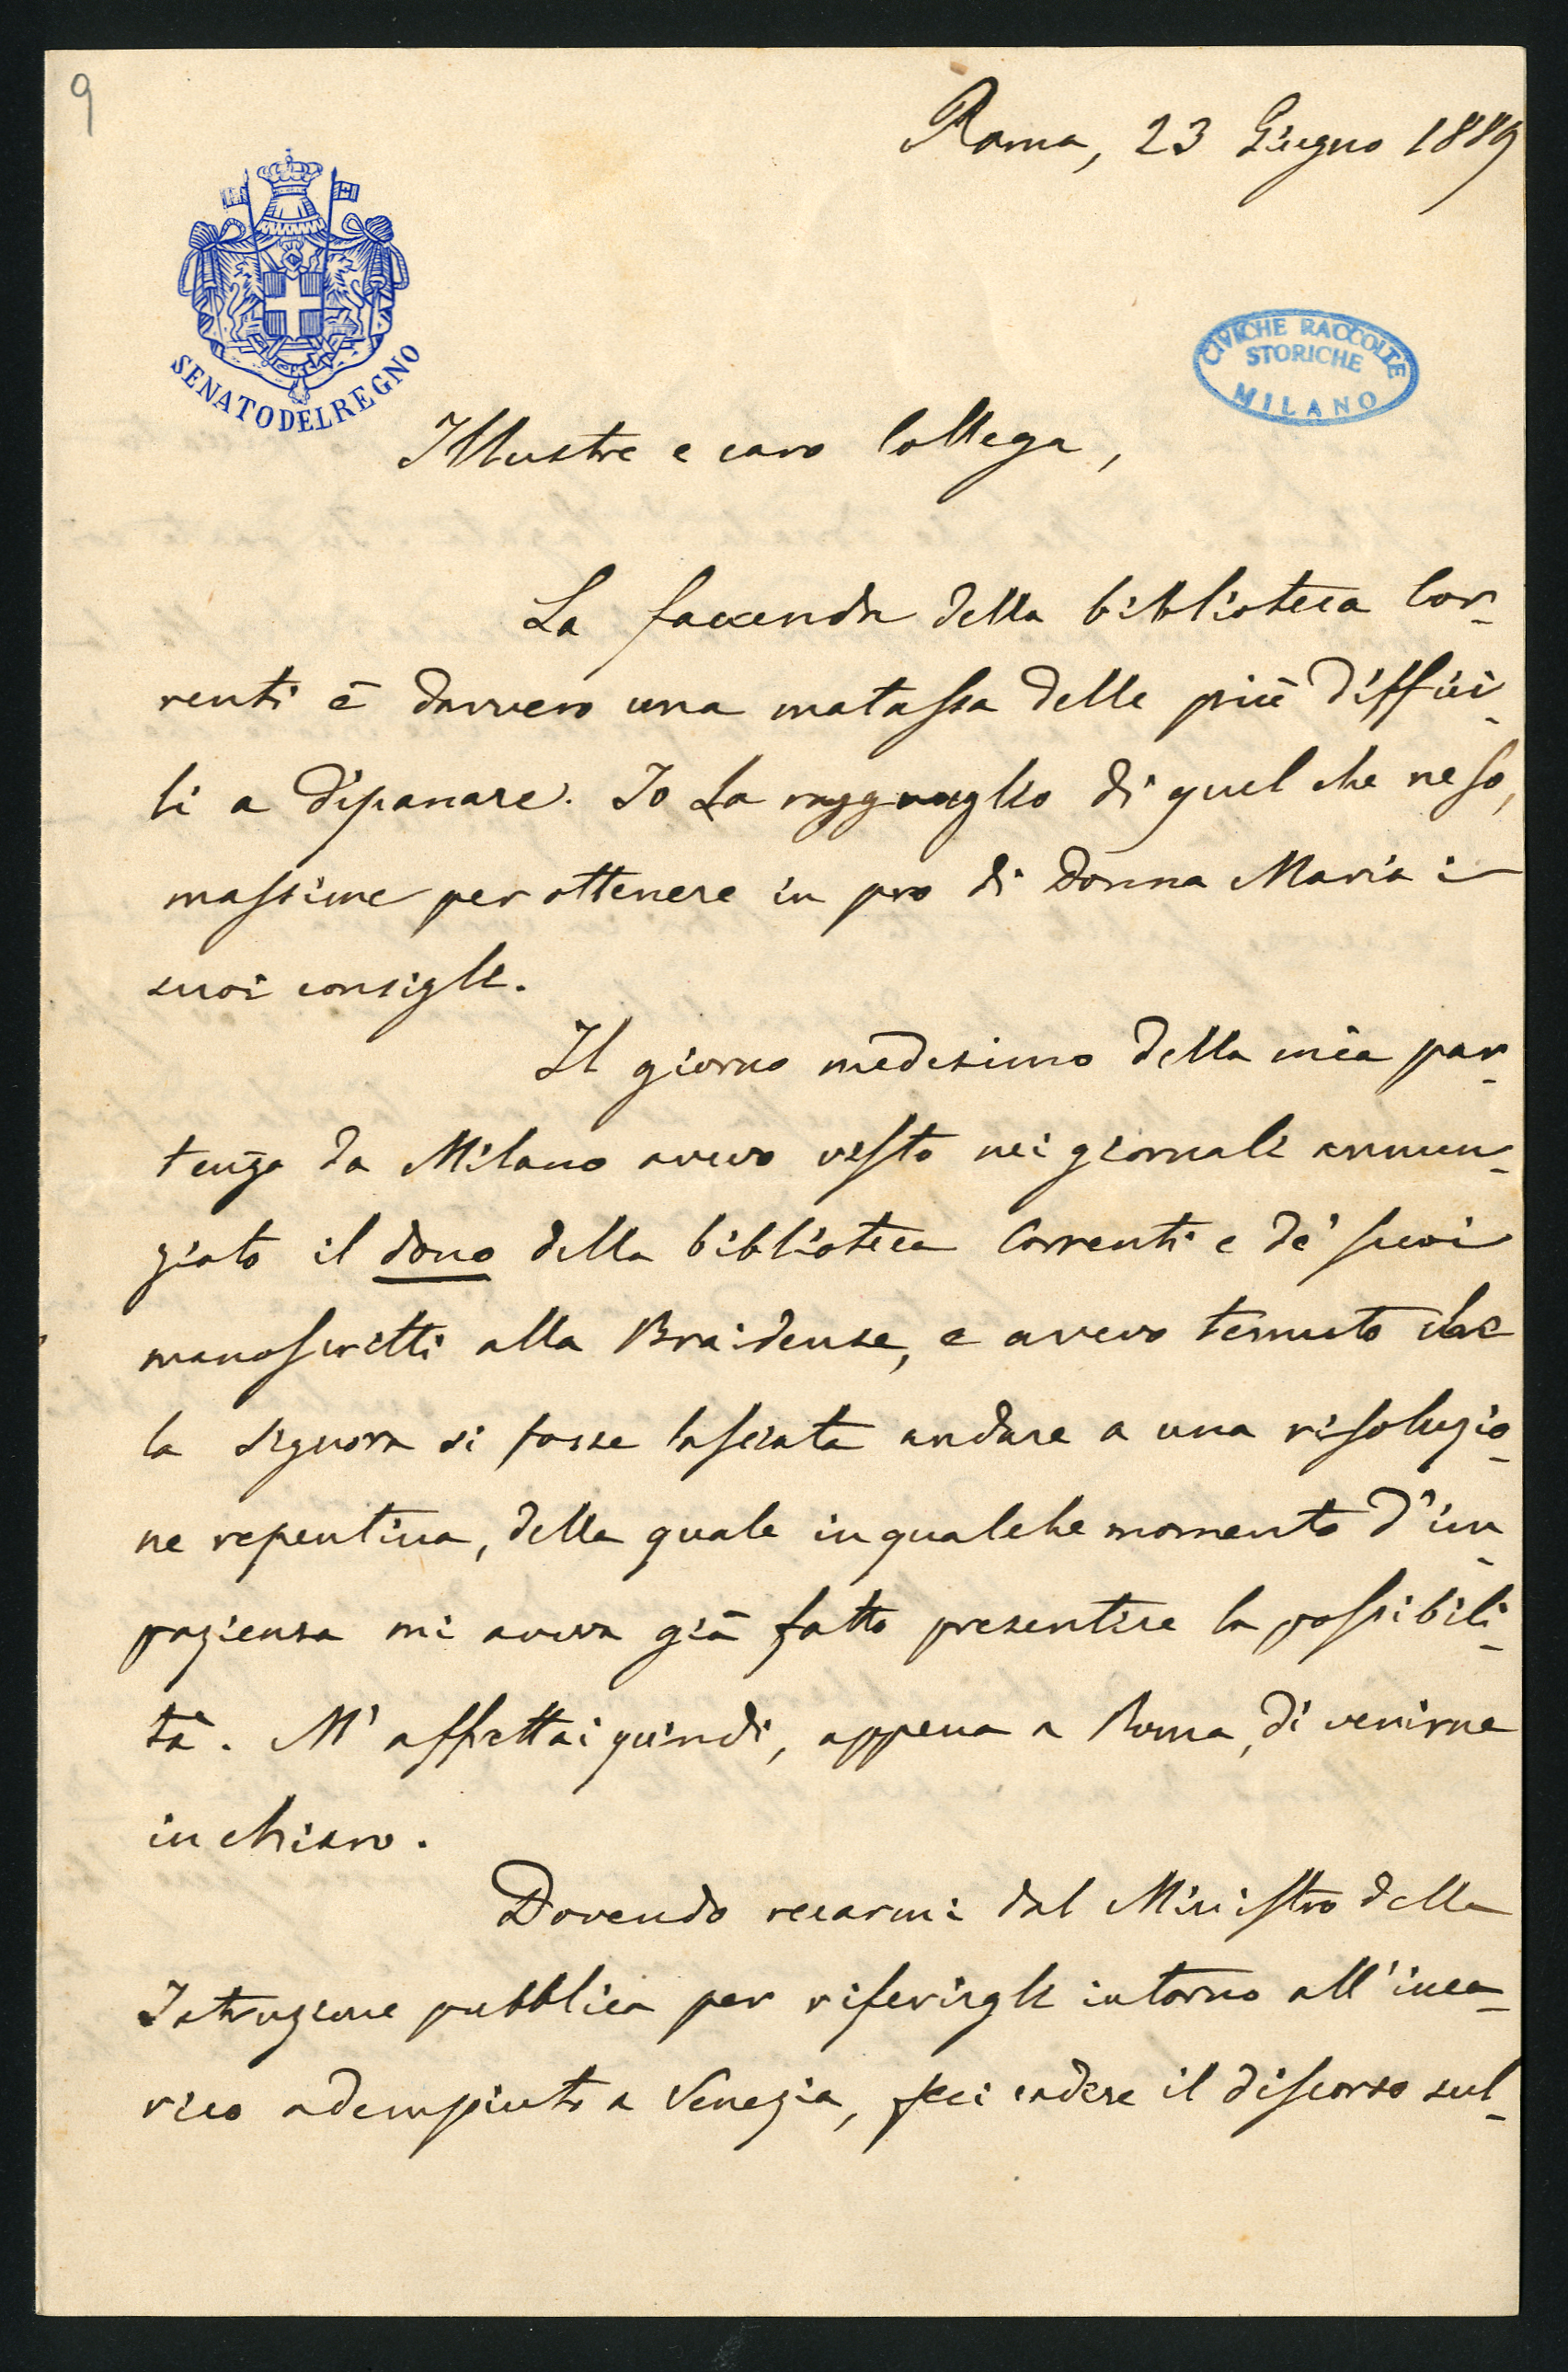 9
Roma, 23 Giugno 1889
SENATO DEL REGNO
CIVICHE RACCOLTE
STORICHE
MILANO
Illustre e caro Collega,
La faccenda della biblioteca Cor-
renti è davvero una matassa delle più diffici-
li a dipanare. Io La ragguaglio di quel che ne so,
massime per ottenere in pro di Donna Maria i
suoi consigli.
Il giorno medesimo della mia par-
tenza da Milano avevo visto nei giornali annun-
ziato il dono della biblioteca Correnti e de' suoi
manoscritti alla Braidense, e avevo temuto che
la Signora si fosse lasciata andare a una risoluzio-
ne repentina, della quale in qualche momento d'im-
pazienza mi aveva già fatto presentire la possibili-
tà. M'affrettai quindi, appena a Roma, di venirne
in chiaro.
Dovendo recarmi dal Ministro della
Istruzione pubblica per riferirgli intorno all'inca-
rico adempiuto a Venezia, feci cadere il discorso sul-